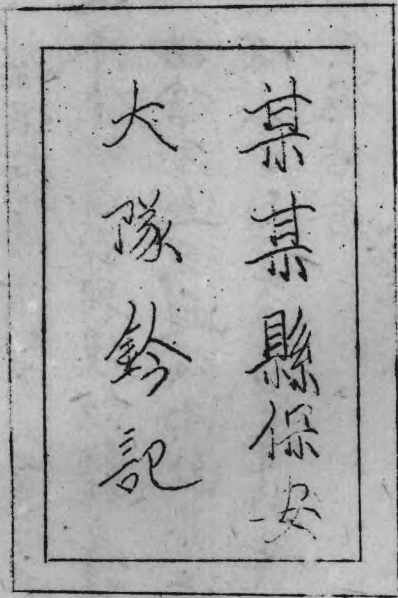 某某縣保安
大隊鈐記